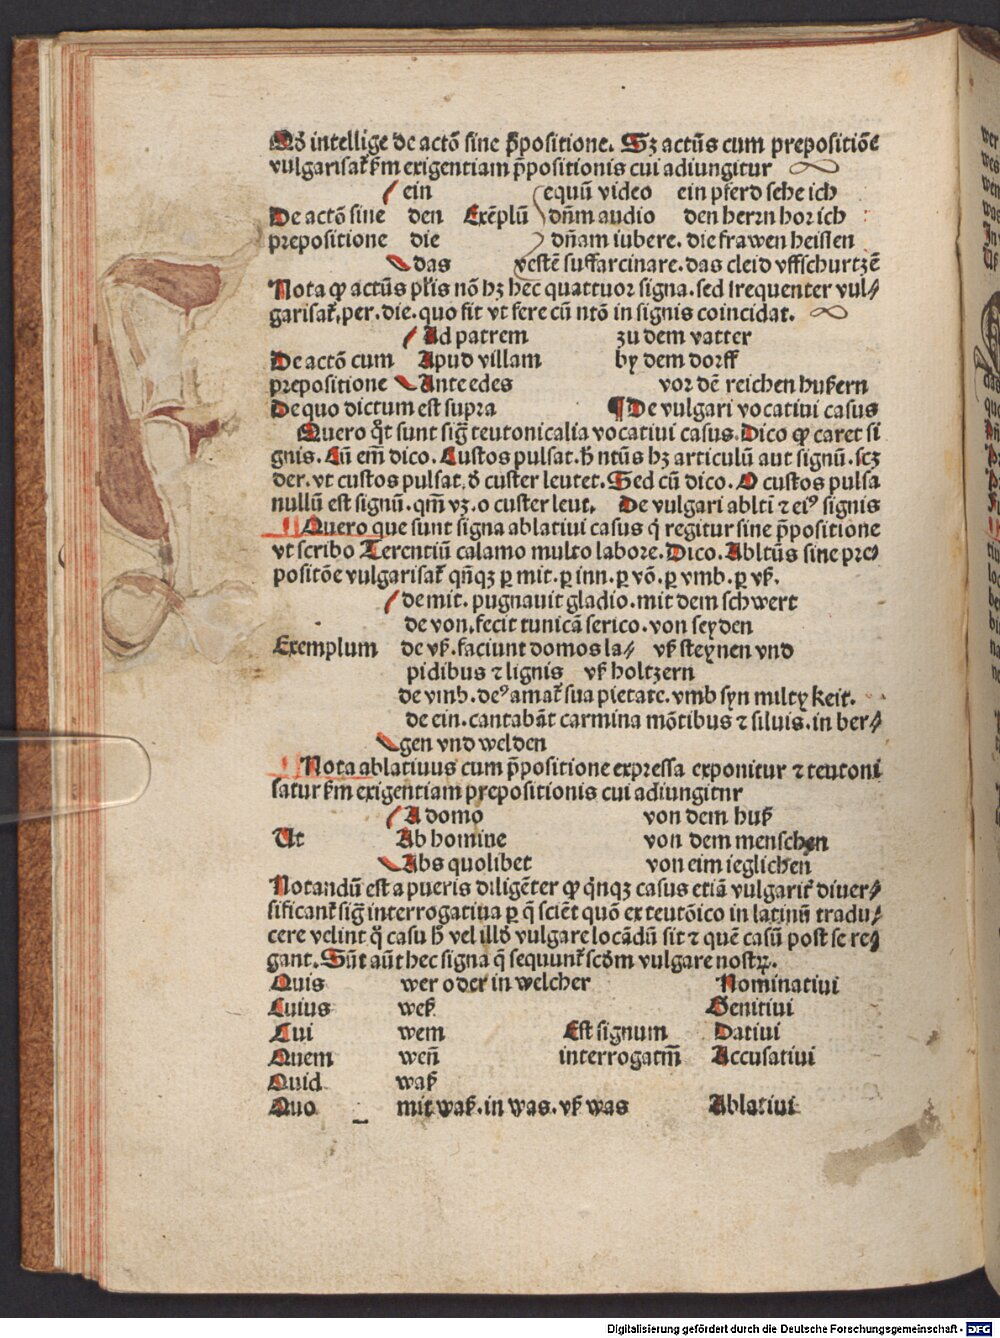 Qð intellige de actõ sine p̄positione. Sz actũs cum prepositiõe
vulgarisat̃ s̃m exigentiam p̄positionis cui adiungitur
ein equũ video ein pferd sehe ich
De actõ sine den Exẽplũ dñm audio den herrn hor ich
prepositione die dñam iubere. die frawen heissen
das vestẽ suffarcinare. das cleid vffschurtzẽ
Nota ꝙ actũs pl̃is nõ hz hec quattuor signa. sed frequenter vul⸗
garisat̃. per. die. quo fit vt fere cũ ntõ in signis coincidat.
Ad patrem zu dem vatter
De actõ cum Apud villam by dem dorff
prepositione Ante edes vor dẽ reichen hußern
De quo dictum est supra ¶ De vulgari vocatiui casus
Quero q̃t sunt sig̃ teutonicalia vocatiui casus. Dico ꝙ caret si
gnis. Cũ em̃ dico. Custos pulsat. h̃ ntũs hz articulũ aut signũ. scz
der. vt custos pulsat. ð custer leutet. Sed cũ dico. O custos pulsa
nullũ est signũ. qm̃ vz. o custer leut. De vulgari ablti ⁊ eiꝰ signis
¶ Quero que sunt signa ablatiui casus q̇ regitur sine p̄positione
vt scribo Terentiũ calamo multo labore. Dico. Abltũs sine pre⸗
positõe vulgarisat̃ qñqz ꝑ mit. ꝑ inn. ꝑ võ. ꝑ vmb. ꝑ vß.
de mit. pugnauit gladio. mit dem schwert
de von. fecit tunicã serico. von seyden
Exemplum de vß. faciunt domos la⸗ vß steynen vnd
pidibus ⁊ lignis vß holtzern
de vmb. deꝰ amat̃ sua pietate. vmb syn miltykeit.
de ein. cantabãt carmina mõtibus ⁊ siluis. in ber⸗
gen vnd welden
¶ Nota ablatiuus cum p̄positione expressa exponitur ⁊ teutoni
satur s̃m exigentiam prepositionis cui adiungitnr
A domo von dem huß
Ut Ab homine von dem menschen
Abs quolibet von eim ieglichen
Notandũ est a pueris diligẽter ꝙ q̇nqz casus etiã vulgarit̃ diuer⸗
sificant̃ sig̃ interrogatiua ꝑ q̃ sciẽt quõ ex teutõico in latinũ tradu⸗
cere velint q̊ casu h̃ vel illð vulgare locãdũ sit ⁊ quẽ casũ post se re⸗
gant. Sũt aũt hec signa q̃ sequunt̃ scðm vulgare nostꝝ.
Quis wer oder in welcher Nominatiui
Cuius weß Genitiui
Cui wem Est signum Datiui
Quem weñ interrogatm̃ Accusatiui
Quid waß
Quo mit waß. in was. vß was Ablatiui
Digitalisierung gefördert durch die Deutsche Forschungsgemeinschaft - DFG